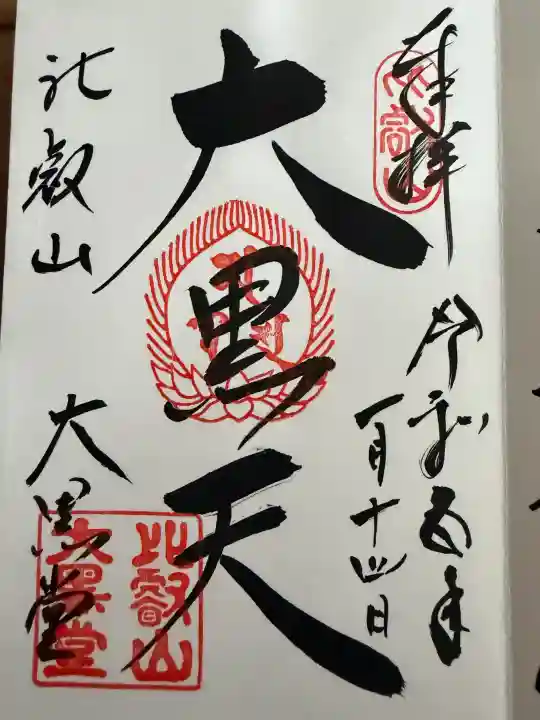 奉拝
令和五年
一月十四日
大黒天
比叡山
大黒堂
比叡山
比叡山
大黒堂